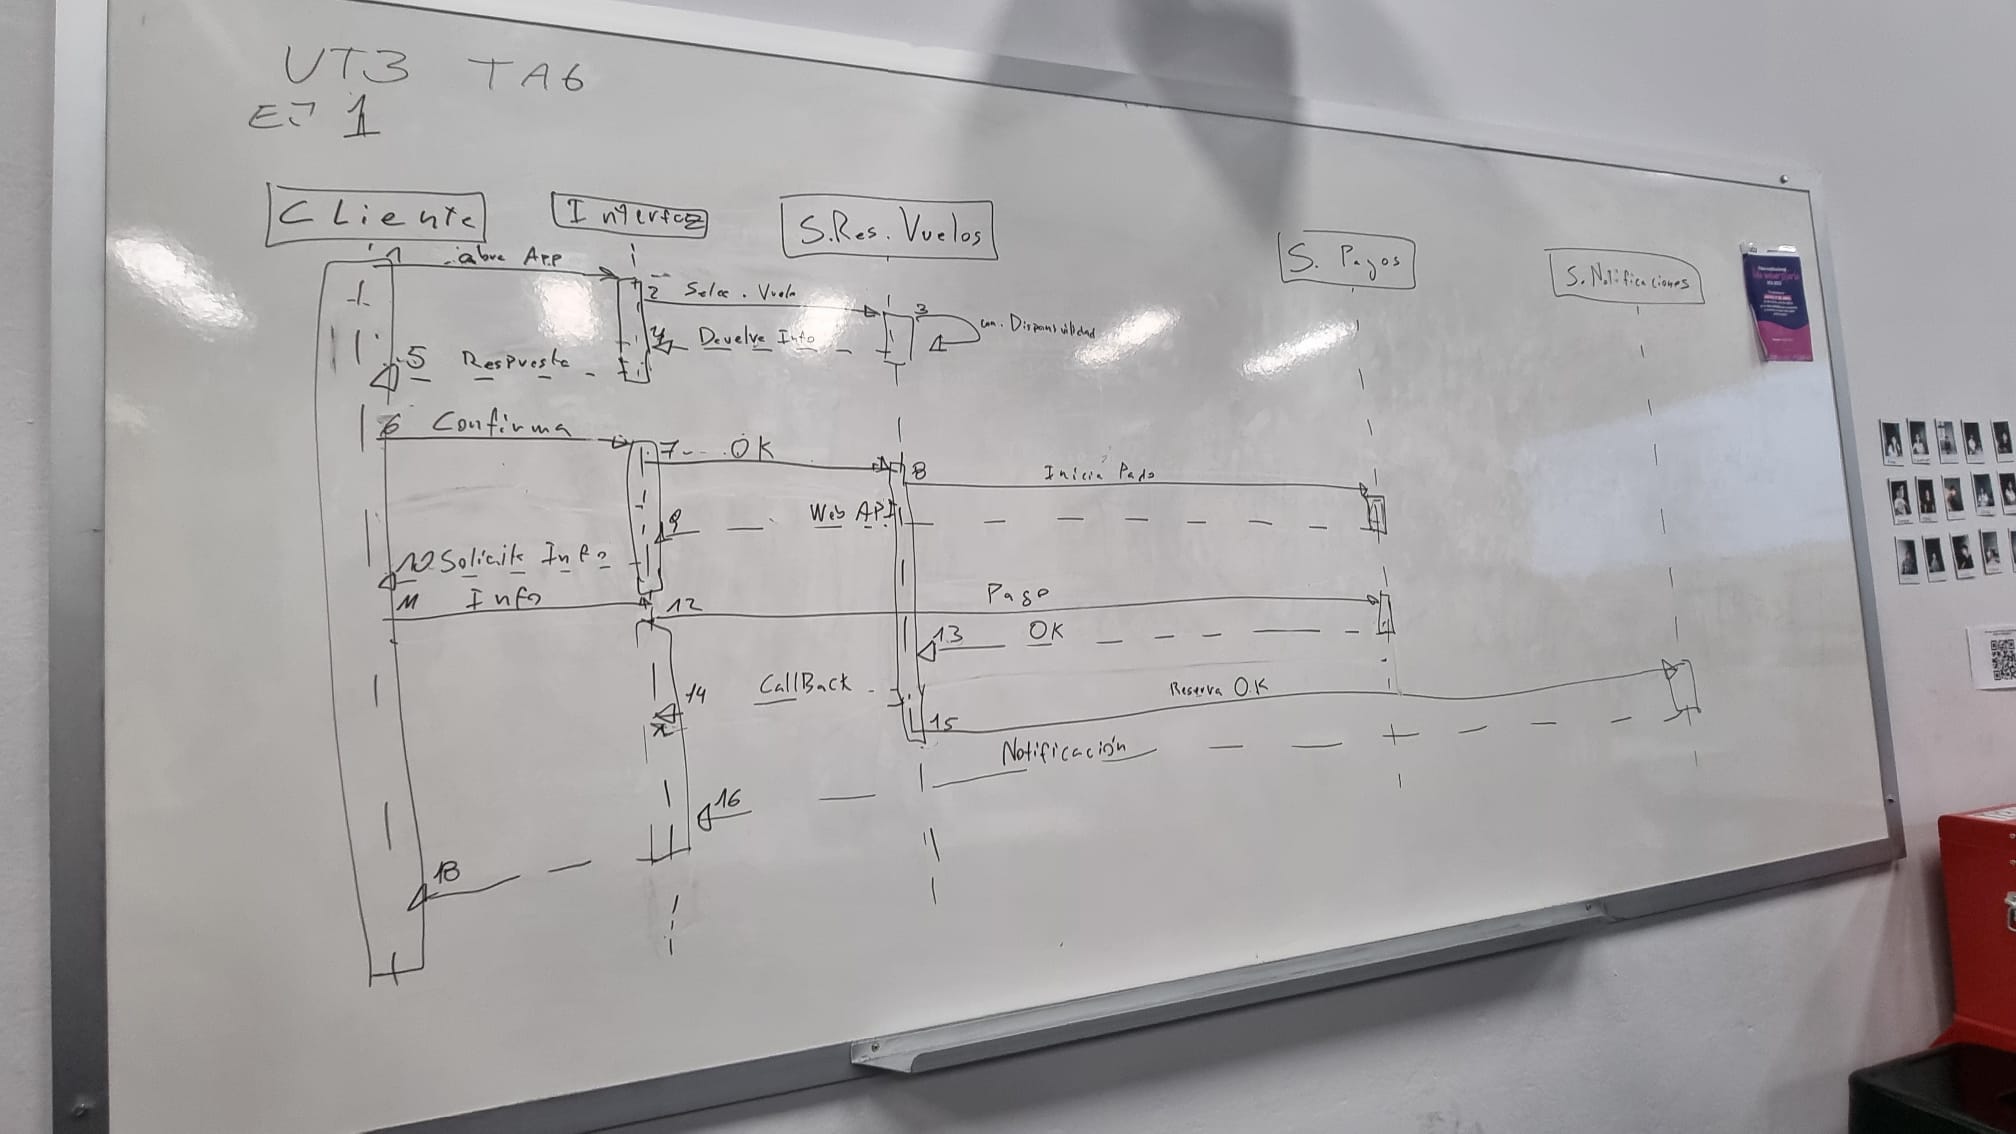 UT3 TA6
EJ 1
CLiente
Interfaz
S.Res. Vuelos
S. Pagos
S.Notificaciones
1 abre App
2 Selec. Vuelo
3 con. Disponibilidad
4 Develve Info
5 Respuesta
6 Confirma
7 OK
8 Inicia Pado
9 Web API
10 Solicita Info
11 Info
12 Pago
13 OK
14 CallBack
15 Reserva OK
Notificación
16
18